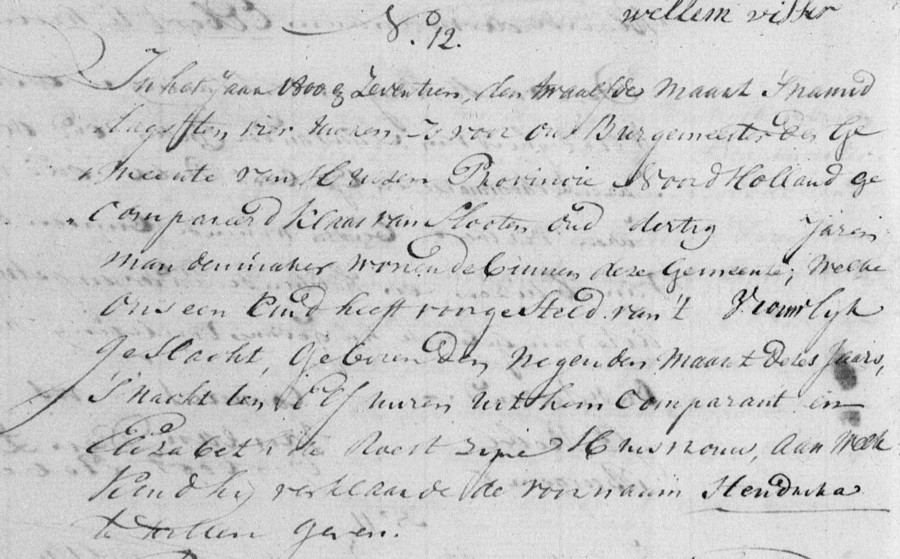 willem visser
No. 12.
In het Jaar 1800 & Zeventien, den twaalfde Maart S'namid
dags ten vier uuren is voor ons Burgemeester der Ge
meente van Huizen Provincie Noord Holland ge
Compareerd Klaas van Slooten oud dertig Jaren
mandemaker wonende binnen deze Gemeente, Welke
ons een Kind heeft voorgesteld van't Vrouwlyk
geslacht, geboren den negenden Maart dezes Jaars,
S'nachts ten Elf uuren uit hem Comparant en
Elizabet de Roest zyne Huisvrouw, aan welk
Kind hy verklaarde de voornaam Hendrika
te willen geven.